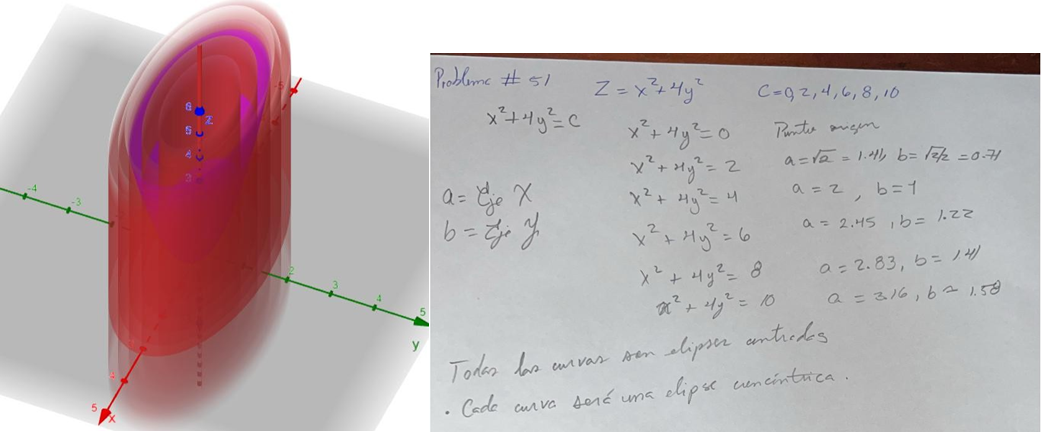 -4
-3
2
3
4
5
y
-5
z
6
5
4
3
4
5
x
Probleme # 51 Z = x²+4y² C=0, 2, 4, 6, 8, 10
x²+4y²=C x²+4y²=0 Punto origen
x²+4y²=2 a=√2 = 1.41, b=√2/2 =0.71
a= Eje X x²+4y²=4 a=2, b=1
b= Eje y x²+4y²=6 a=2.45, b=1.22
x²+4y²=8 a=2.83, b=1.41
x²+4y²=10 a=3.16, b=1.58
Todas las curvas son elipses centradas
• Cada curva será una elipse concéntrica.